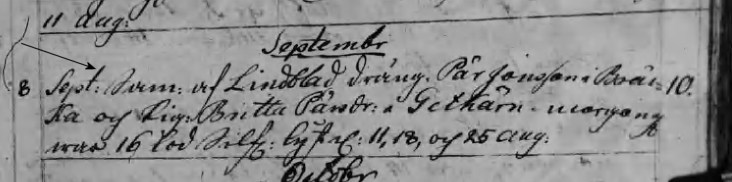 11 Aug:
Septembr
8 Sept: Sam: af Lindblad dräng. Pär Jonsson i Bräc= 10.
ka och Pig: Britta Pärsdr: i Gethärn. morgong
war 16 lod Silf: lyst d: 11, 18, och 25 Aug:
Octobr